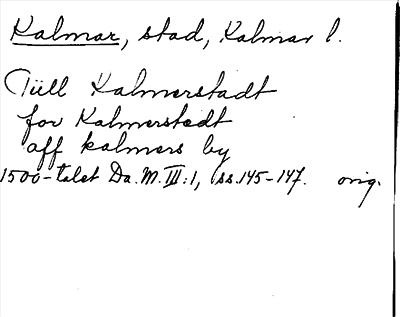 Kalmar, stad, Kalmar l.
Tiill Kalmerstadt
for Kalmerstedt
aff kalmers by
1500-talet Da.M.III:1, ss.145-147. orig.